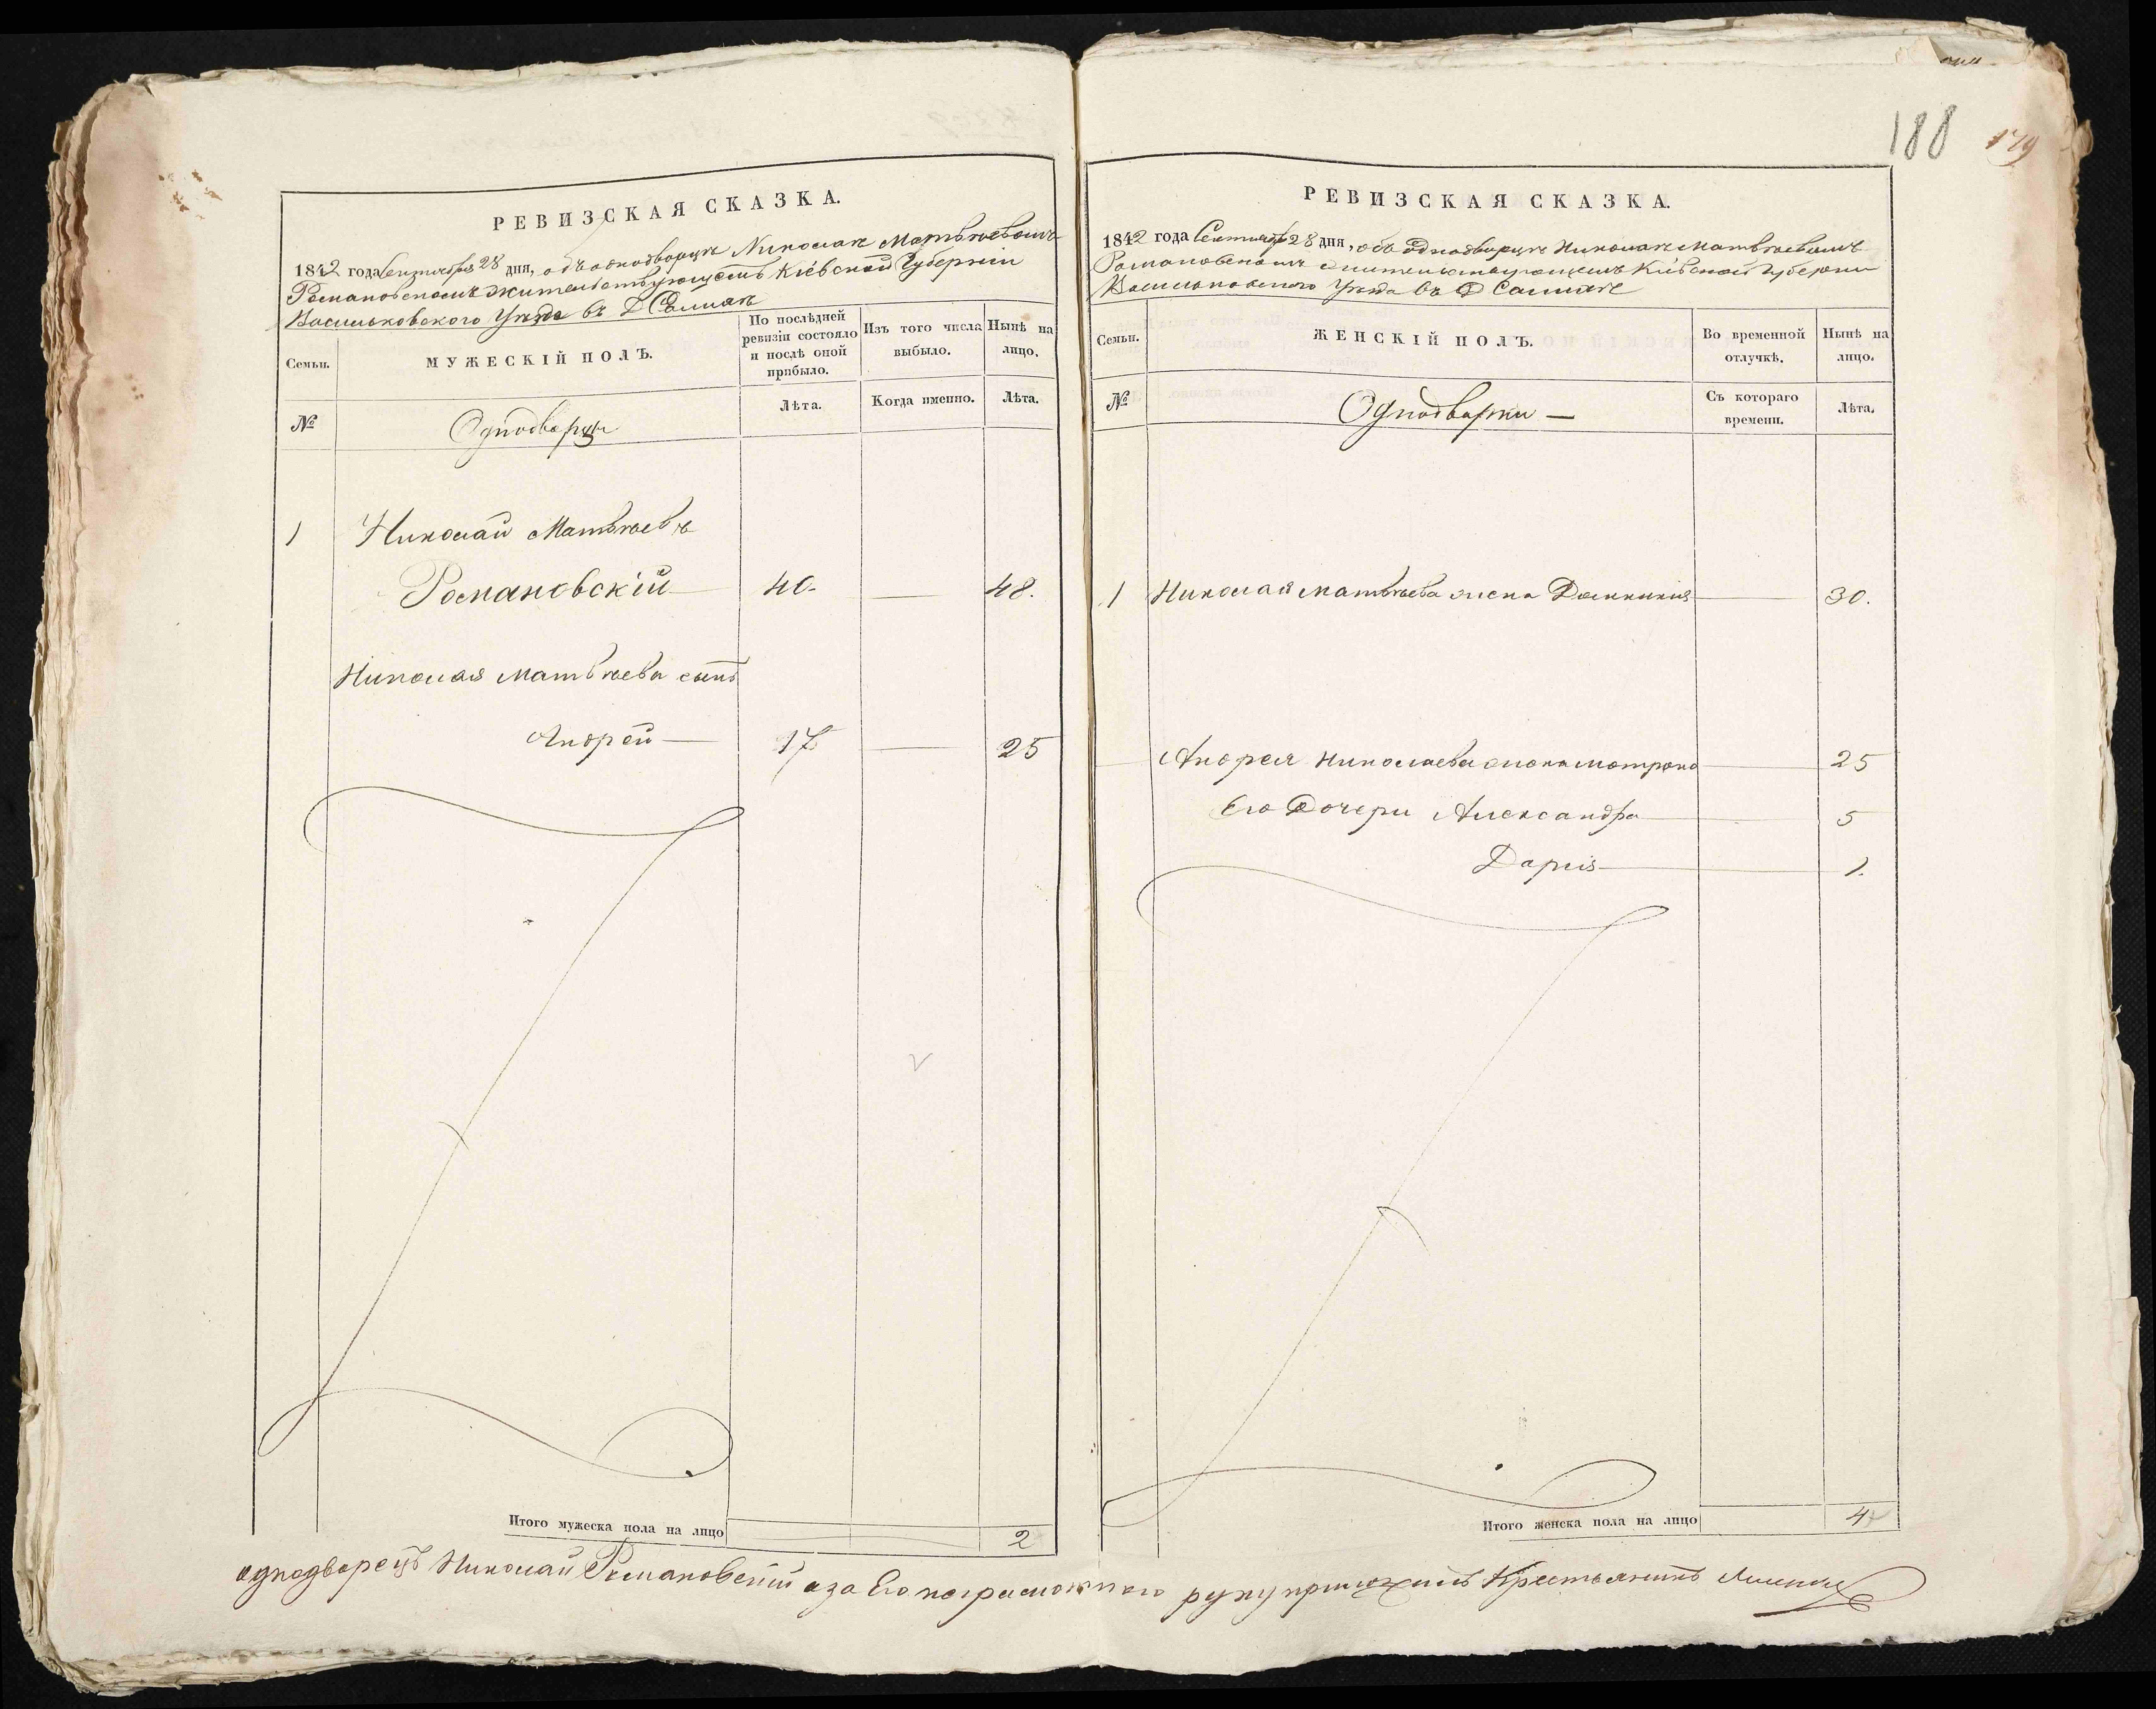 РЕВИЗСКАЯ СКАЗКА.
1842 года Сентября 28 дня, объ однодворцѣ Николаѣ Матвѣевомъ
Романовскомъ жительствующемъ Кіевской Губерніи
Васильковского Уѣзда въ Д
Семьи.
МУЖЕСКІЙ ПОЛЪ.
По послѣдней ревизіи состояло и послѣ оной прибыло.
Изъ того числа выбыло.
Нынѣ на лицо.
№
Однодворцы
Лѣта.
Когда именно.
Лѣта.
1 Николай Матвѣевъ
Романовскій 40. 48.
Николая Матвѣева сынъ
Андрей 17 25
Итого мужеска пола на лицо 2
188 179
РЕВИЗСКАЯ СКАЗКА.
1842 года Сентября 28 дня, объ однодворцѣ Николаѣ Матвѣевомъ
Романовскомъ жительствующемъ Кіевской Губерніи
Васильковского Уѣзда въ Д
Семьи.
ЖЕНСКІЙ ПОЛЪ.
Во временной отлучкѣ.
Нынѣ на лицо.
№
Однодворки —
Съ котораго времени.
Лѣта.
1 Николая Матвѣева жена Домникія 30.
Андрея Николаева жена Матрона 25
Его Дочери Александра 5
Дарія 1.
Итого женска пола на лицо 4
однодворецъ Николай Романовскій а за Его неграмотного руку приложилъ Крестьянинъ